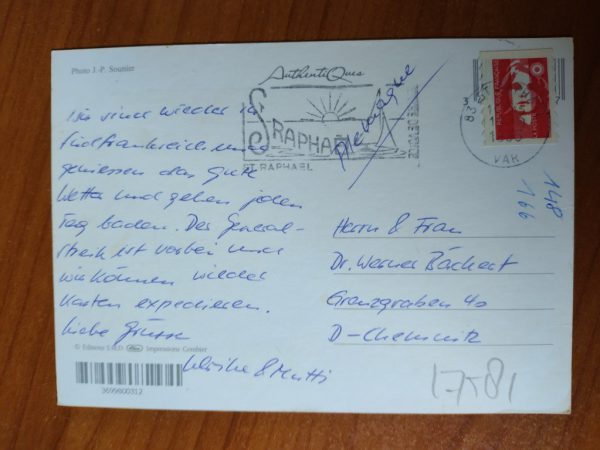 Photo J.-P. Sounier
AuthentiQues
S RAPHAEL
ST RAPHAEL
83
VAR
RÉPUBLIQUE FRANÇAISE
LA POSTE
Allemagne
148
166
Wir sind wieder in
Südfrankreich und
geniessen das gute
Wetter und gehen jeden
Tag baden. Der General-
streik ist vorbei und
wir können wieder
Karten expedieren.
Liebe Grüsse
Ulrike & Mutti
Herrn & Frau
Dr. Werner Bächert
Grenzgraben 40
D-Chemnitz
© Editions S.E.D. Impressions Combier
3699800312
17581